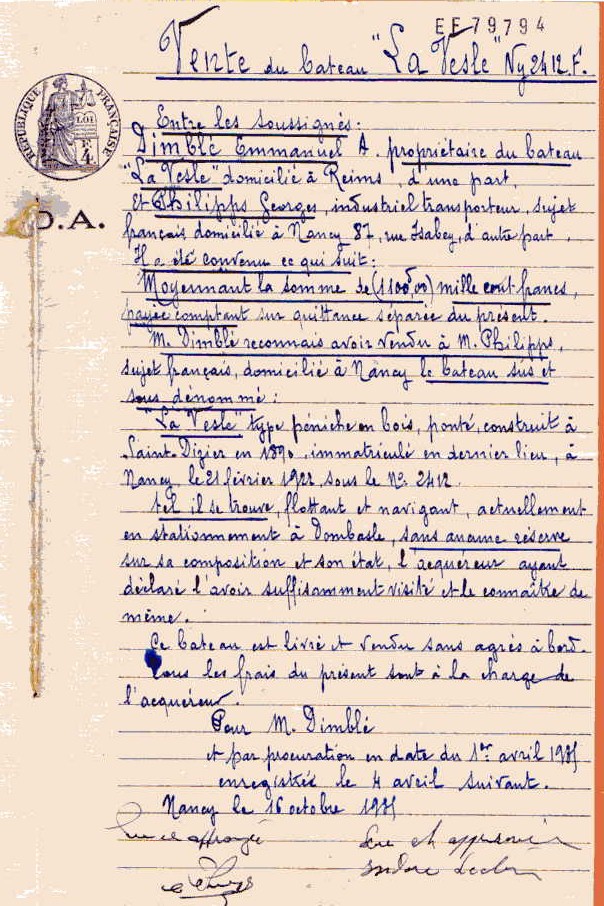 EE79794
Vente du bateau "La Vesle" Ny 2412.F.
RÉPUBLIQUE FRANÇAISE
LOI
F.4
D.A.
Entre les soussignés:
Dimblé Emmanuel A. propriétaire du bateau
"La Vesle" domicilié à Reims, d'une part,
Et Philipps Georges, industriel transporteur, sujet
français domicilié à Nancy 87, rue Isabey, d'autre part.
Il a été convenu ce qui suit:
Moyennant la somme de (1100,00) mille cent francs,
payée comptant sur quittance séparée du présent.
M. Dimblé reconnais avoir vendu à M. Philipps,
sujet français, domicilié à Nancy le bateau sus et
sous dénommé:
"La Vesle" type péniche en bois, ponté, construit à
Saint-Dizier en 1890, immatriculé en dernier lieu, à
Nancy, le 21 février 1922 sous le No. 2412.
tel il se trouve, flottant et navigant, actuellement
en stationnement à Dombasle, sans aucune réserve
sur sa composition et son état, l'acquéreur ayant
déclaré l'avoir suffisamment visité et le connaître de
même.
Ce bateau est livré et vendu sans agrés à bord.
Tous les frais du présent sont à la charge de
l'acquéreur.
Pour M. Dimblé
et par procuration en date du 1er avril
enregistrée le 4 avril suivant.
Nancy le 16 octobre
Lu et approuvé
Lu et approuvé